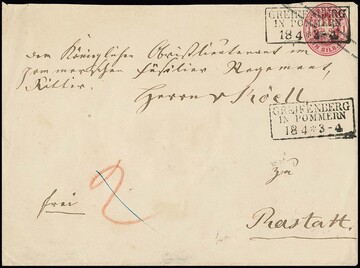 GREIFENBERG
IN POMMERN
18 4 * 3-4
Dem Königlichen Obristlieutenant im
Pommerschen Füsilier Regement,
Ritter
Herrn v
GREIFENBERG
IN POMMERN
18 4 * 3-4
zu
frei
2
Rastatt.